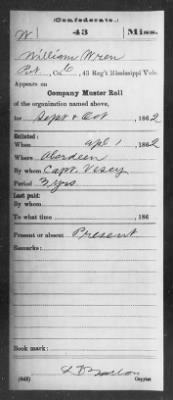 (Confederate.)
W 43 Miss.
William Wren
Pvt, Co. , 43 Reg't Mississippi Vols.
Appears on
Company Muster Roll
of the organization named above,
for Sept & Oct, 1862
Enlisted:
When Apl 1, 1862
Where Aberdeen
By whom Capt. Vesey
Period 3 yrs
Last paid:
By whom
To what time , 186
Present or absent Present
Remarks:
Book mark:
(642) Copyist.